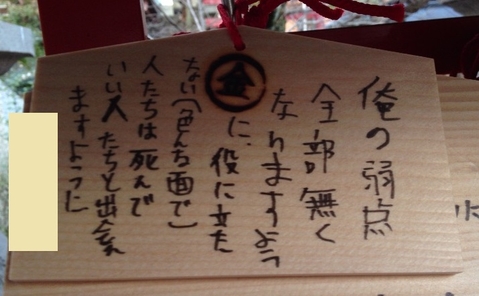 俺の弱点
全部無く
なりますよう
金
に、役に立た
ない(色んな面で)
人たちは死んで
いい人たちと出会え
ますように